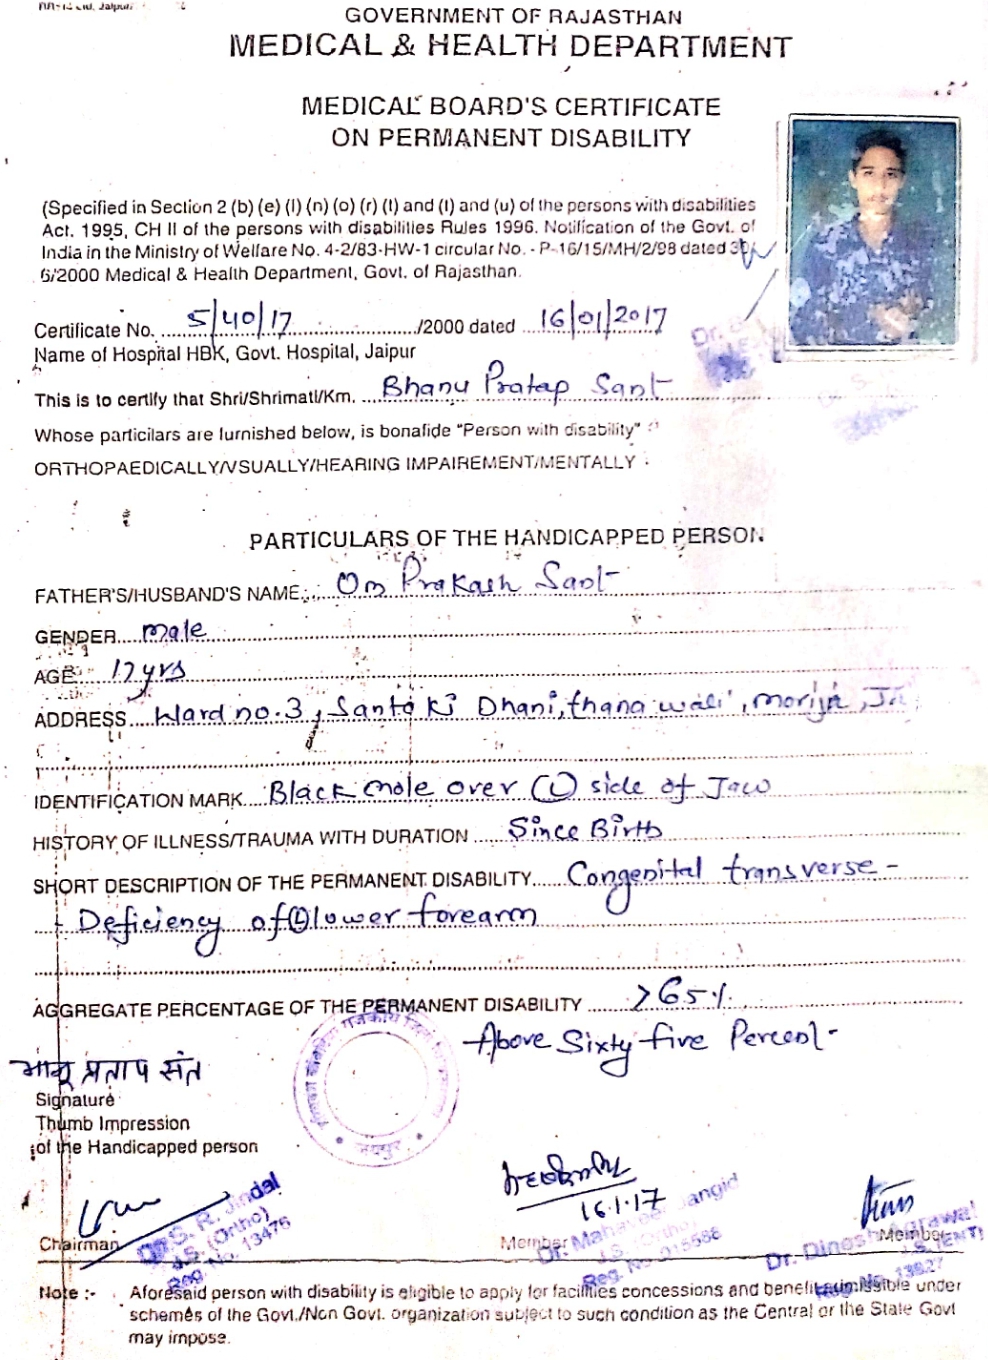 GOVERNMENT OF RAJASTHAN
MEDICAL & HEALTH DEPARTMENT
MEDICAL BOARD'S CERTIFICATE
ON PERMANENT DISABILITY
(Specified in Section 2 (b) (e) (l) (n) (o) (r) (t) and (l) and (u) of the persons with disabilities
Act. 1995, CH II of the persons with disabilities Rules 1996. Notification of the Govt. of
India in the Ministry of Welfare No. 4-2/83-HW-1 circular No. - P-16/15/MH/2/98 dated
6/2000 Medical & Health Department, Govt. of Rajasthan.
Certificate No. 5/40/17 /2000 dated 16/01/2017
Name of Hospital HBK, Govt. Hospital, Jaipur
This is to certify that Shri/Shrimati/Km. Bhanu Pratap Sant
Whose particilars are furnished below, is bonafide "Person with disability"
ORTHOPAEDICALLY/VSUALLY/HEARING IMPAIREMENT/MENTALLY
PARTICULARS OF THE HANDICAPPED PERSON
FATHER'S/HUSBAND'S NAME: Om Prakash Sant
GENDER male
AGE 17 yrs
ADDRESS Ward no. 3, Santo Ki Dhani, thana wali, morija,
IDENTIFICATION MARK Black mole over (L) side of Jaw
HISTORY OF ILLNESS/TRAUMA WITH DURATION Since Birth
SHORT DESCRIPTION OF THE PERMANENT DISABILITY Congenital transverse -
- Deficiency of (L) lower forearm
AGGREGATE PERCENTAGE OF THE PERMANENT DISABILITY >65%
Above Sixty five Percent -
भानू प्रताप संत
Signature
Thumb Impression
of the Handicapped person
जयपुर
16.1.17
Chairman
Dr. S. R. Jindal
J.S. (Ortho)
Reg. No. 13476
Member
Dr. Mahaveer Jangid
J.S. (Ortho)
Reg. No.
Member
Dr. Dinesh Agrawal
J.S. (ENT)
Note :- Aforesaid person with disability is eligible to apply for facilities concessions and benefit admissible under
schemes of the Govt./Non Govt. organization subject to such condition as the Central or the State Govt
may impose.